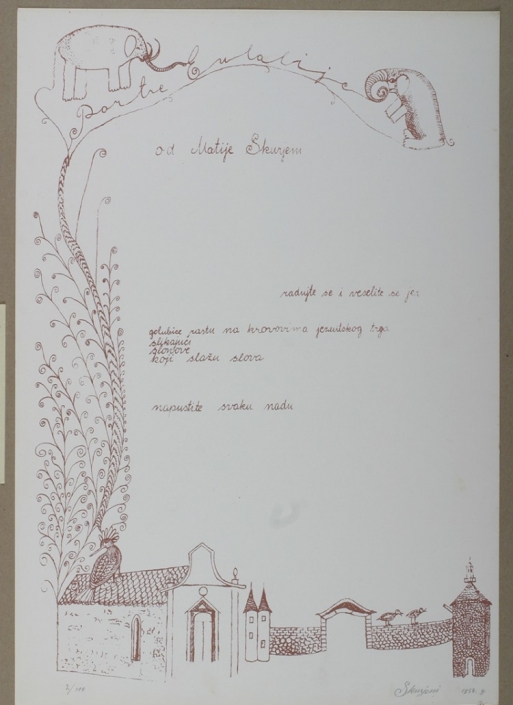 portre Eulalije
od Matije Skurjeni
radujte se i veselite se jer
golubice rastu na krovovima jezuitskog trga
slikajući
slonove
koji slažu slova
napustite svaku nadu
Skurjeni